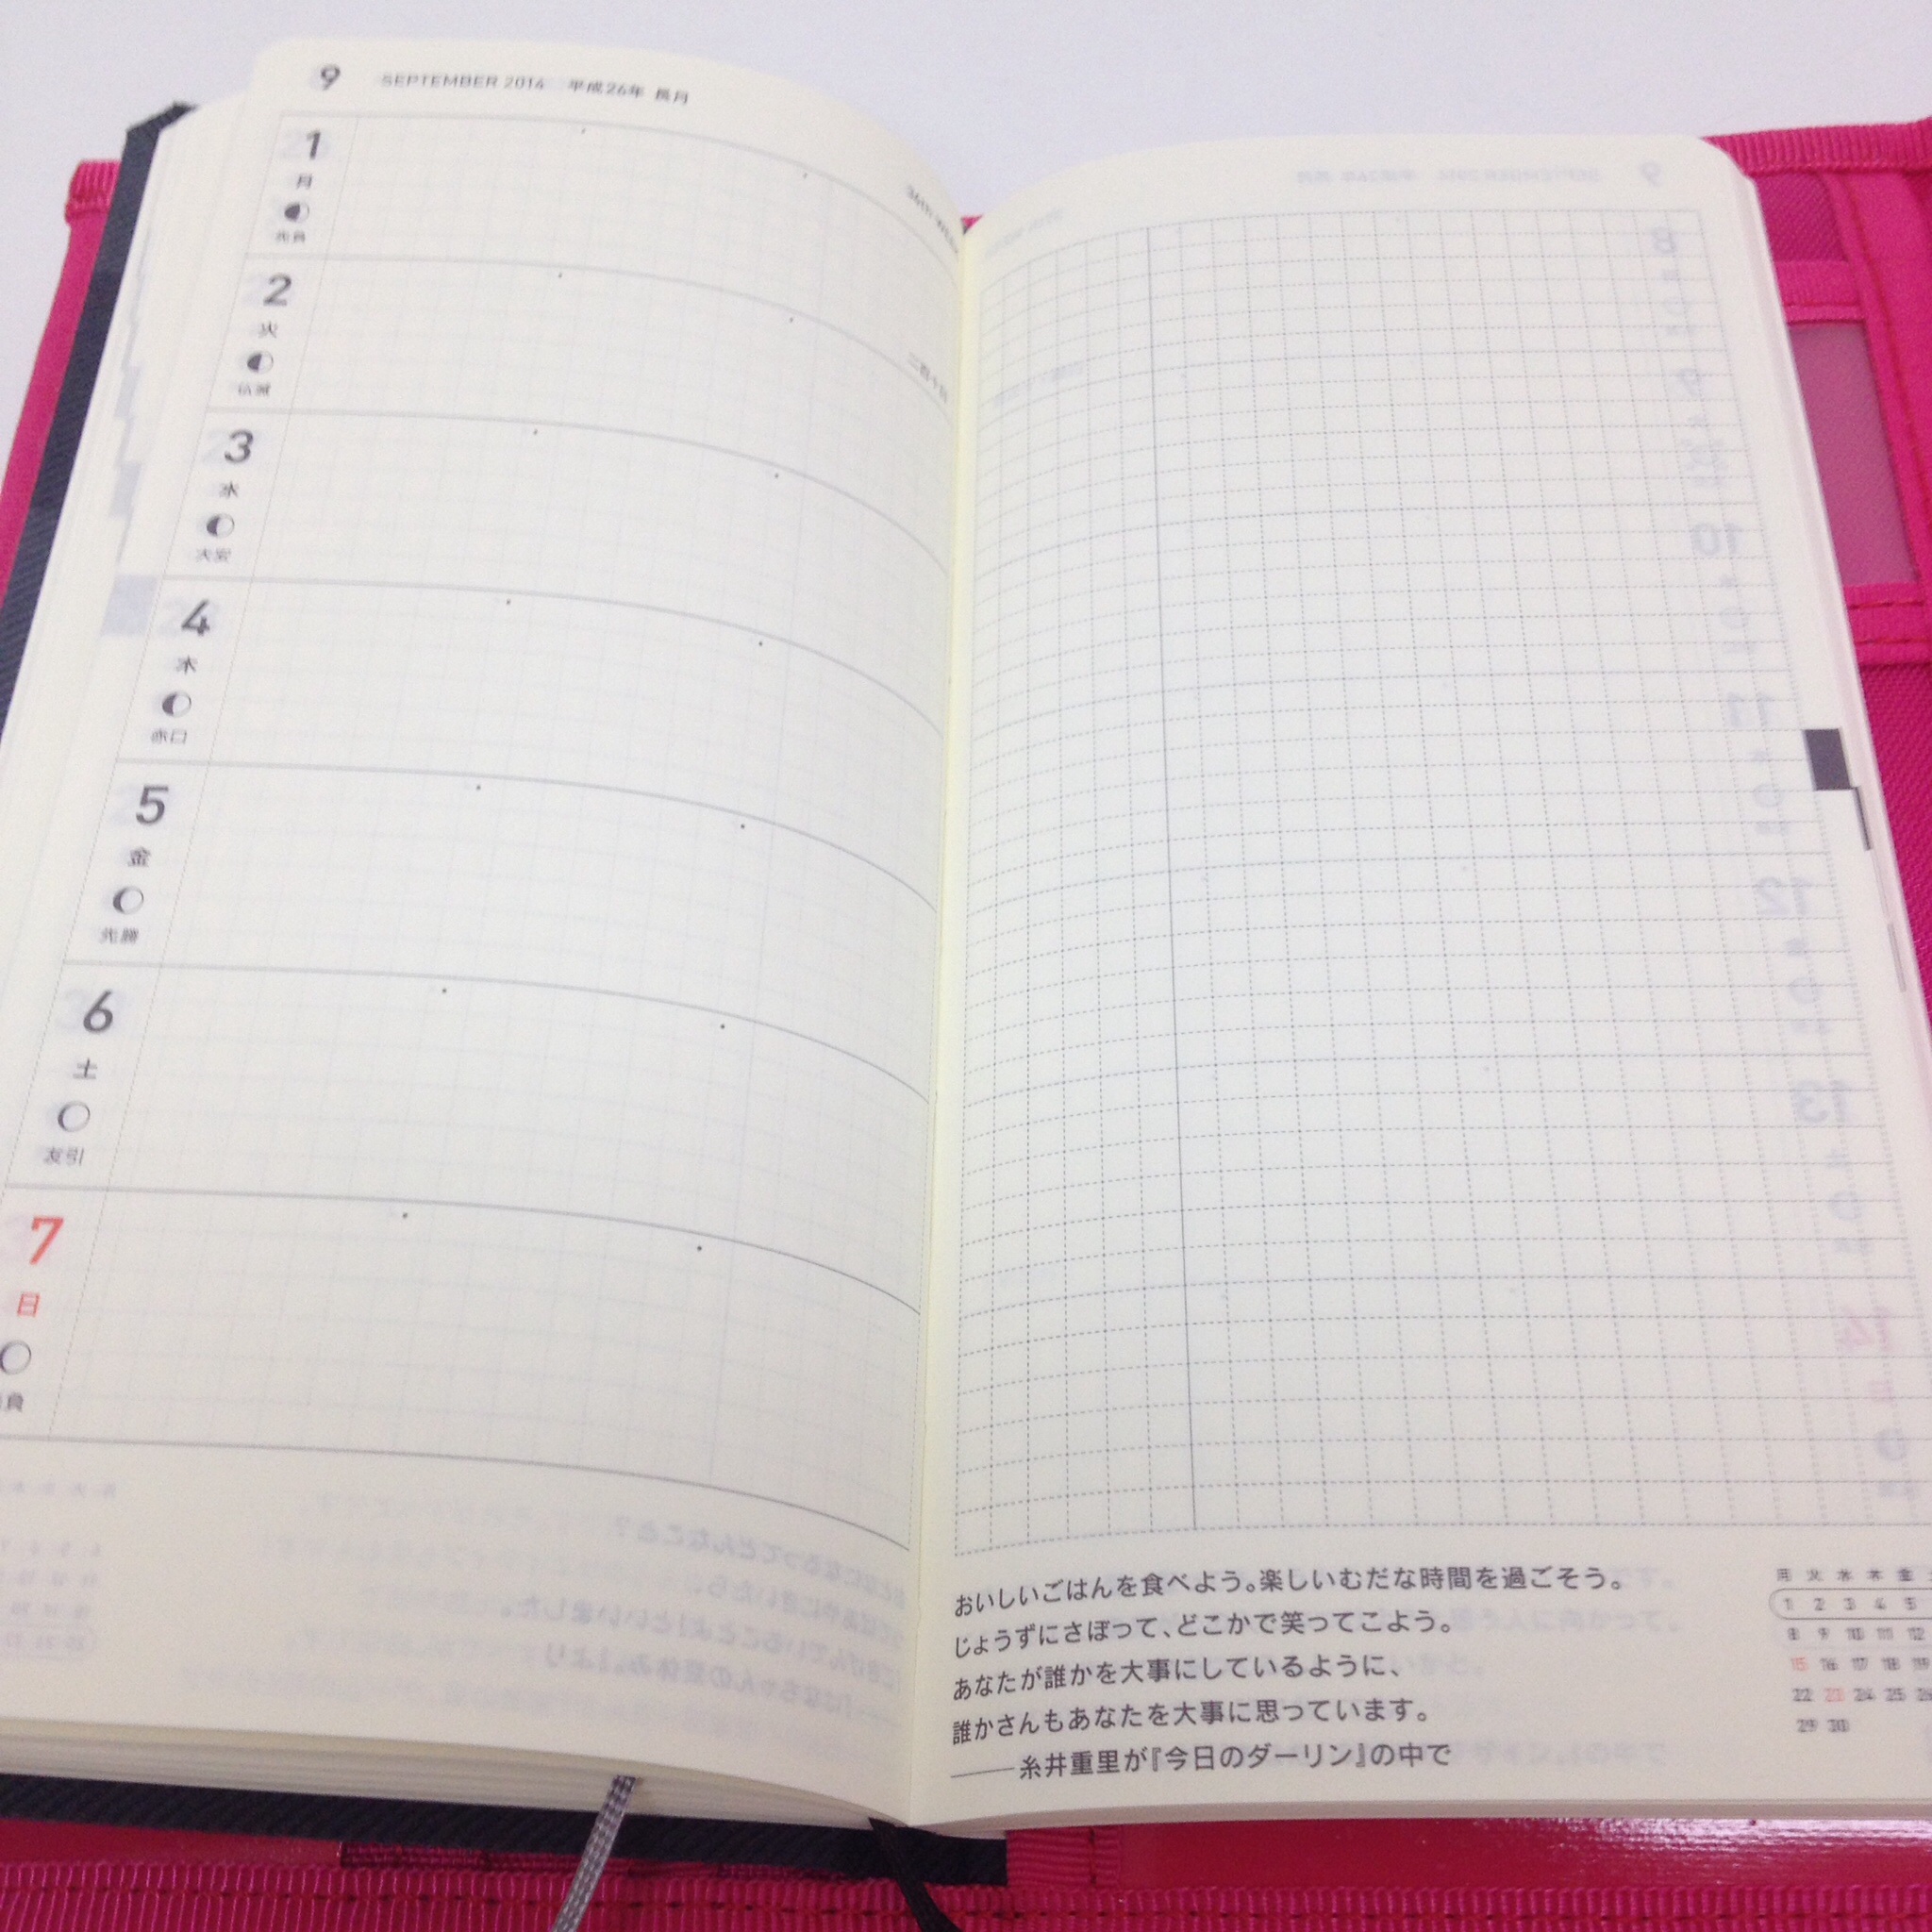 9 SEPTEMBER 2014 平成26年 長月
36TH WEEK
1
月
先負
2
火
仏滅
二百十日
3
水
大安
4
木
赤口
5
金
先勝
6
土
友引
7
日
負
おいしいごはんを食べよう。楽しいむだな時間を過ごそう。
じょうずにさぼって、どこかで笑ってこよう。
あなたが誰かを大事にしているように、
誰かさんもあなたを大事に思っています。
――糸井重里が『今日のダーリン』の中で
月 火 水 木 金
1 2 3 4 5
8 9 10 11 12
15 16 17 18 19
22 23 24 25 26
29 30